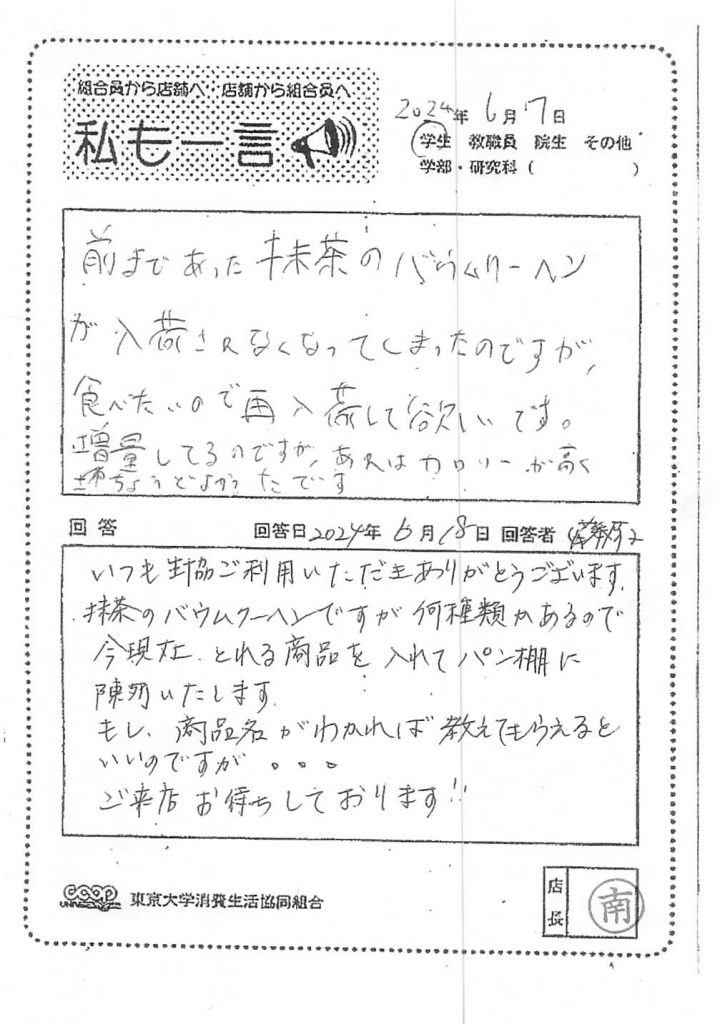 組合員から店舗へ 店舗から組合員へ
私も一言
2024年 6月17日
学生 教職員 院生 その他
学部・研究科( )
前まであった抹茶のバウムクーヘン
が入荷されなくなってしまったのですが、
食べたいので再入荷して欲しいです。
増量してるのですが、あれはカロリーが高く
ちょうどよかったです
回答 回答日2024年 6月18日 回答者
いつも生協ご利用いただきありがとうございます。
抹茶のバウムクーヘンですが何種類かあるので
今現在、とれる商品を入れてパン棚に
陳列いたします。
もし、商品名がわかれば教えてもらえると
いいのですが。。。
ご来店お待ちしております!!
COOP
東京大学消費生活協同組合
店長
南